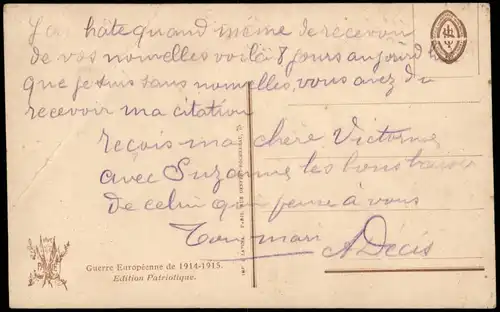 J'ai hâte quand même de recevoir
de vos nouvelles voilà 8 jours aujourd'h
que je suis sans nouvelles, vous avez du
recevoir ma citation
reçois ma chère Victorine
avec Suzanne les bons baisers
de celui qui pense à vous
Ton mari A Decis
Guerre Européenne de 1914-1915.
Edition Patriotique.